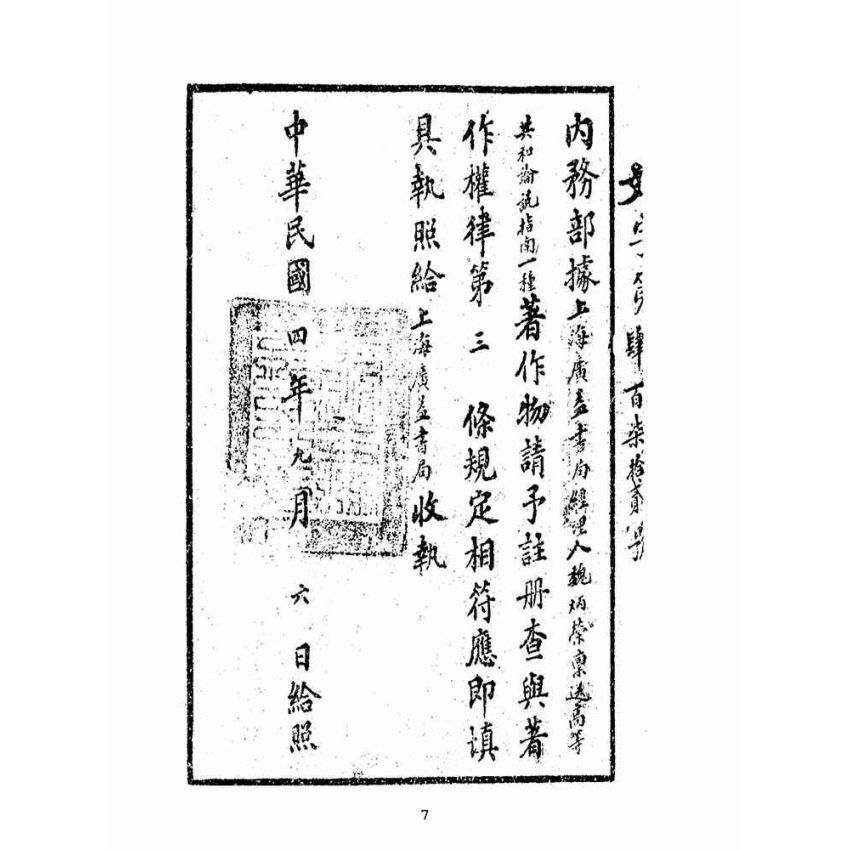 字第肆百柒拾貳號
內務部據上海廣益書局經理人魏炳榮稟送高等
共和論說指南一種著作物請予註册查與著
作權律第三條規定相符應即填
具執照給上海廣益書局收執
中華民國四年九月六日給照
7